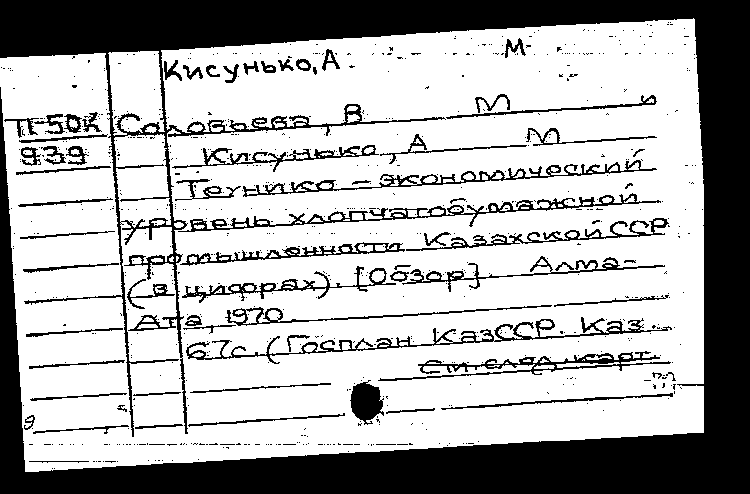 Кисунько, А. М.
П-50К Соловьева, В М и
939 Кисунько, А М
Технико-экономический
уровень хлопчатобумажной
промышленности Казахской ССР
(в цифрах). [Обзор]. Алма-
Ата, 1970.
67с. (Госплан КазССР. Каз.
См. след. карт.
9